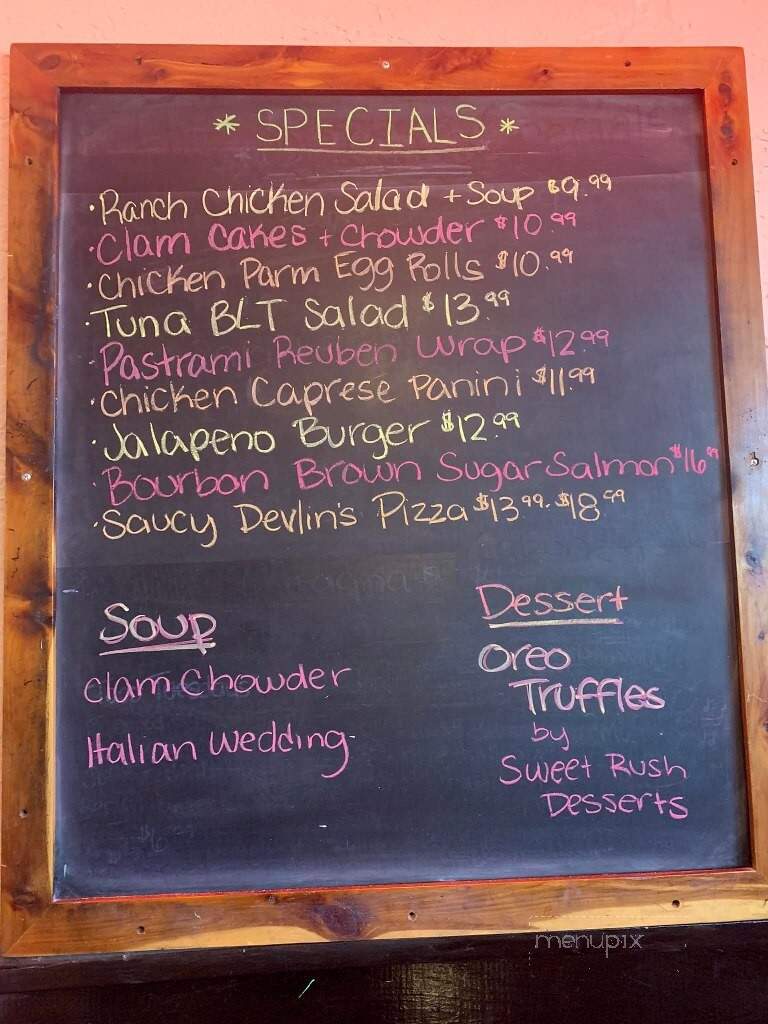 * SPECIALS *
·Ranch Chicken Salad + Soup $9.99
·Clam Cakes + Chowder $10.99
·Chicken Parm Egg Rolls $10.99
·Tuna BLT Salad $13.99
·Pastrami Reuben Wrap $12.99
·Chicken Caprese Panini $11.99
·Jalapeno Burger $12.99
·Bourbon Brown Sugar Salmon $16.99
·Saucy Devlin's Pizza $13.99-$18.99
Soup
Clam Chowder
Italian Wedding
Dessert
Oreo
Truffles
by
Sweet Rush
Desserts
menupix